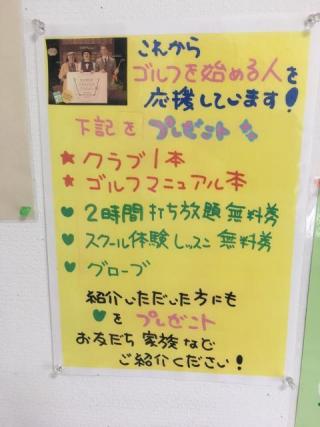 これから
ゴルフを始める人を
応援しています!
下記を プレゼント
★ クラブ1本
★ ゴルフマニュアル本
♥ 2時間打ち放題無料券
♥ スクール体験レッスン無料券
♥ グローブ
紹介いただいた方にも
♥を プレゼント
お友だち 家族など
ご紹介ください!